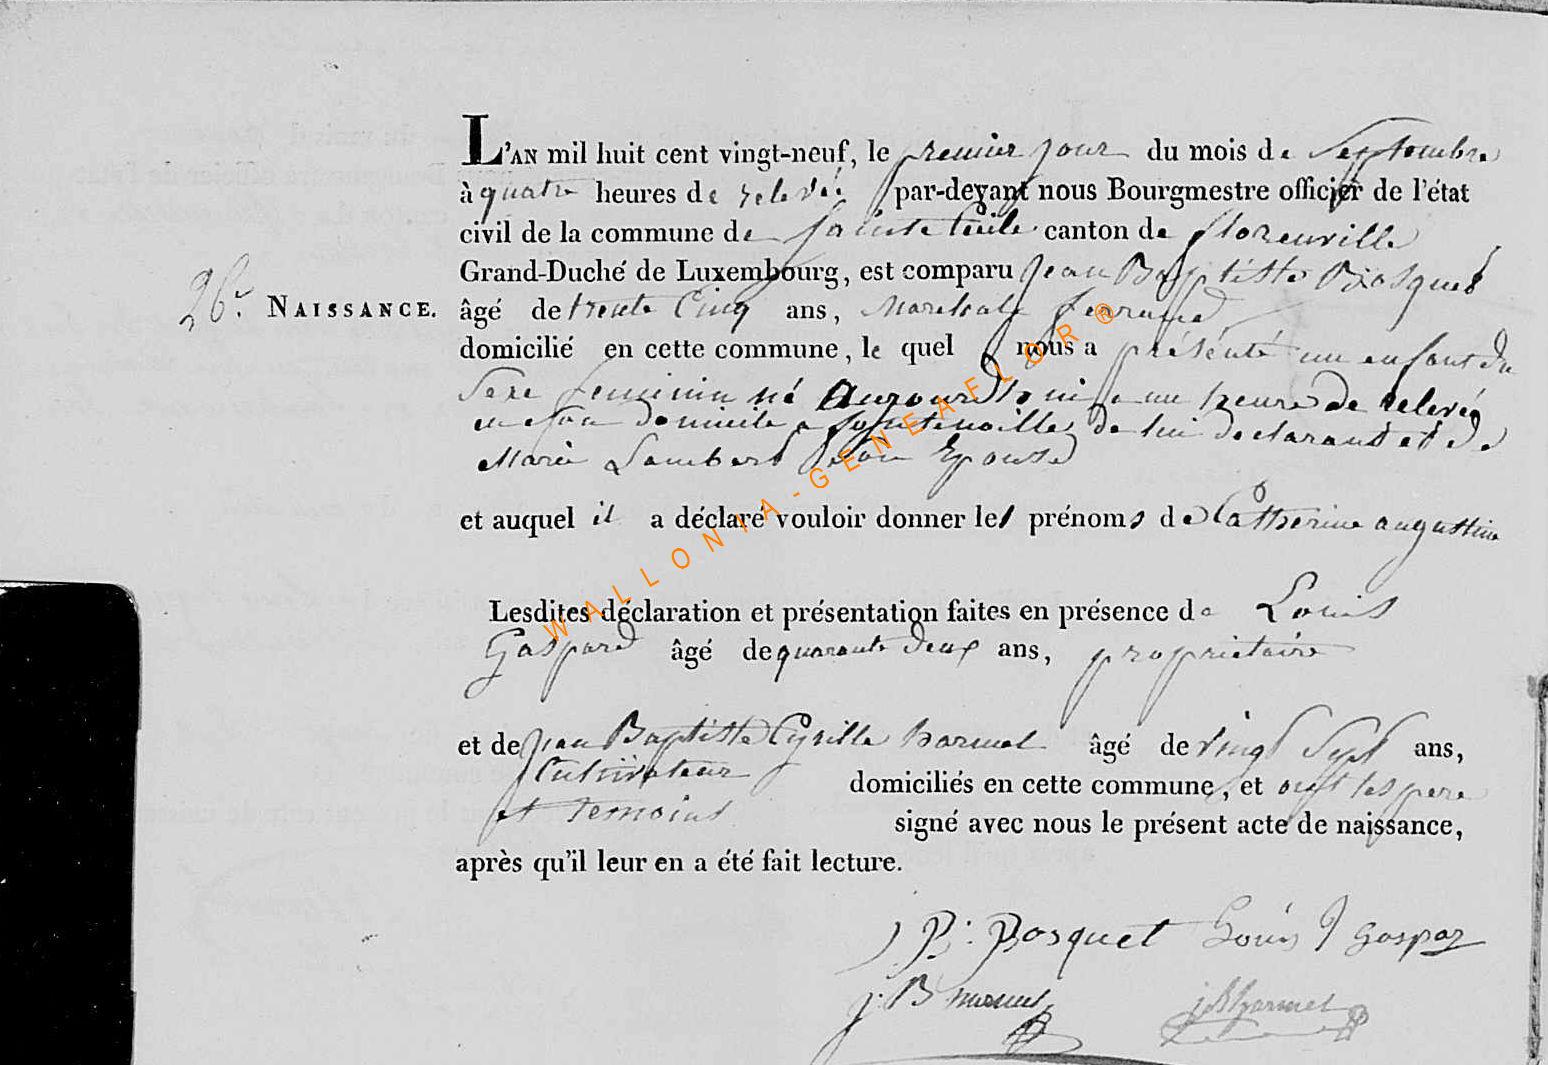 L'AN mil huit cent vingt-neuf, le premier jour du mois de Septembre
à quatre heures de relevée par-devant nous Bourgmestre officier de l'état
civil de la commune de Sainte Cecile canton de florenville
Grand-Duché de Luxembourg, est comparu Jean Baptiste Bosquet
26e NAISSANCE.
âgé de trente Cinq ans, Marechale ferrand
domicilié en cette commune, le quel nous a présenté un enfant du
Sexe feminin né aujourd'hui a une heure de relevée
en son domicile a fontenoille, de lui declarant et de
Marie Lambert Son Epouse
et auquel il a déclaré vouloir donner les prénoms de Catherine augustine
Lesdites déclaration et présentation faites en présence de Louis
Gaspard âgé de quarante deux ans, propriétaire
et de jean Baptiste Cyrille harmel âgé de vingt Sept ans,
Cultivateur domiciliés en cette commune, et ont les pere
et temoins signé avec nous le présent acte de naissance,
après qu'il leur en a été fait lecture.
J B: Bosquet Louis J gaspar
j: B j B harmel
WALLONIA-GENEAFLOR®